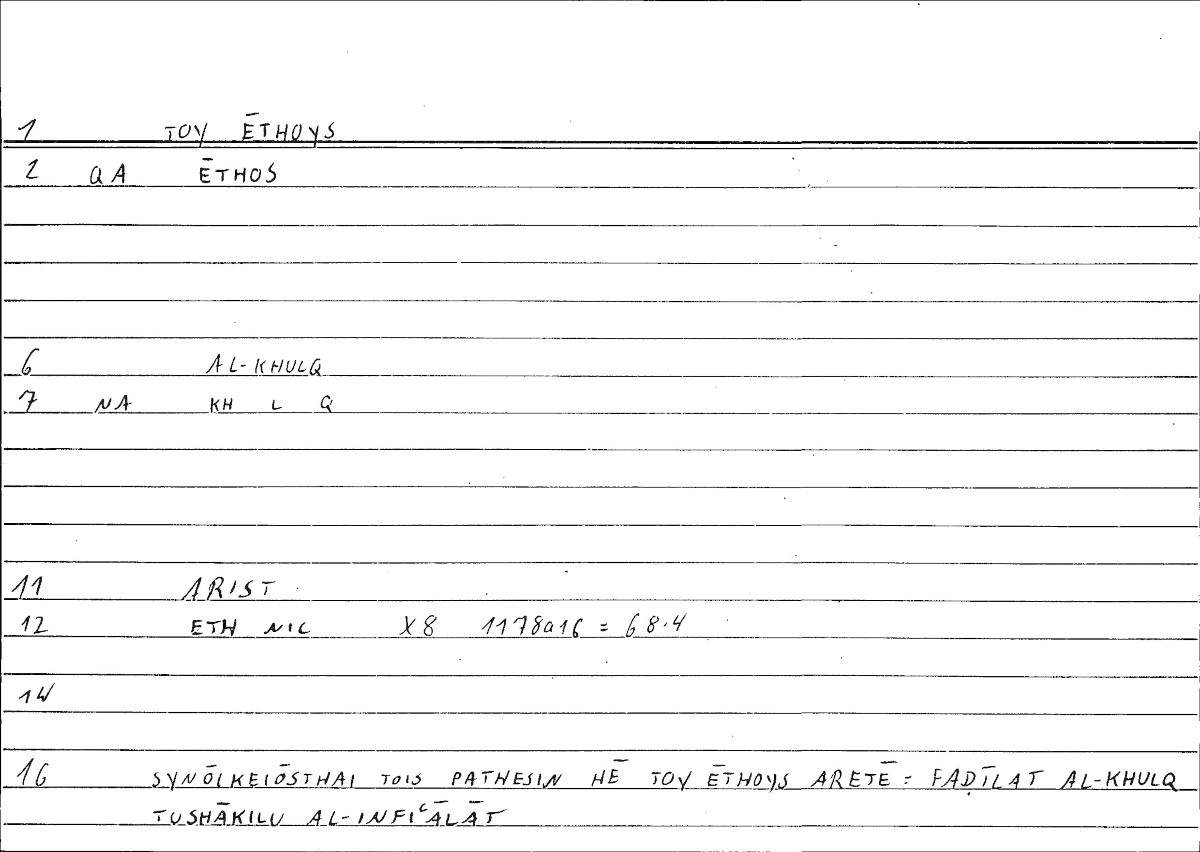 1 TOY ĒTHOYS
2 QA ĒTHOS
6 AL-KHULQ
7 NA KH L Q
11 ARIST
12 ETH NIC X8 1178a16 = 68.4
14
16 SYNŌLKEIŌSTHAI TOIS PATHESIN HĒ TOY ĒTHOYS ARETĒ = FAḌĪLAT AL-KHULQ
TUSHĀKILU AL-INFIʿĀLĀT